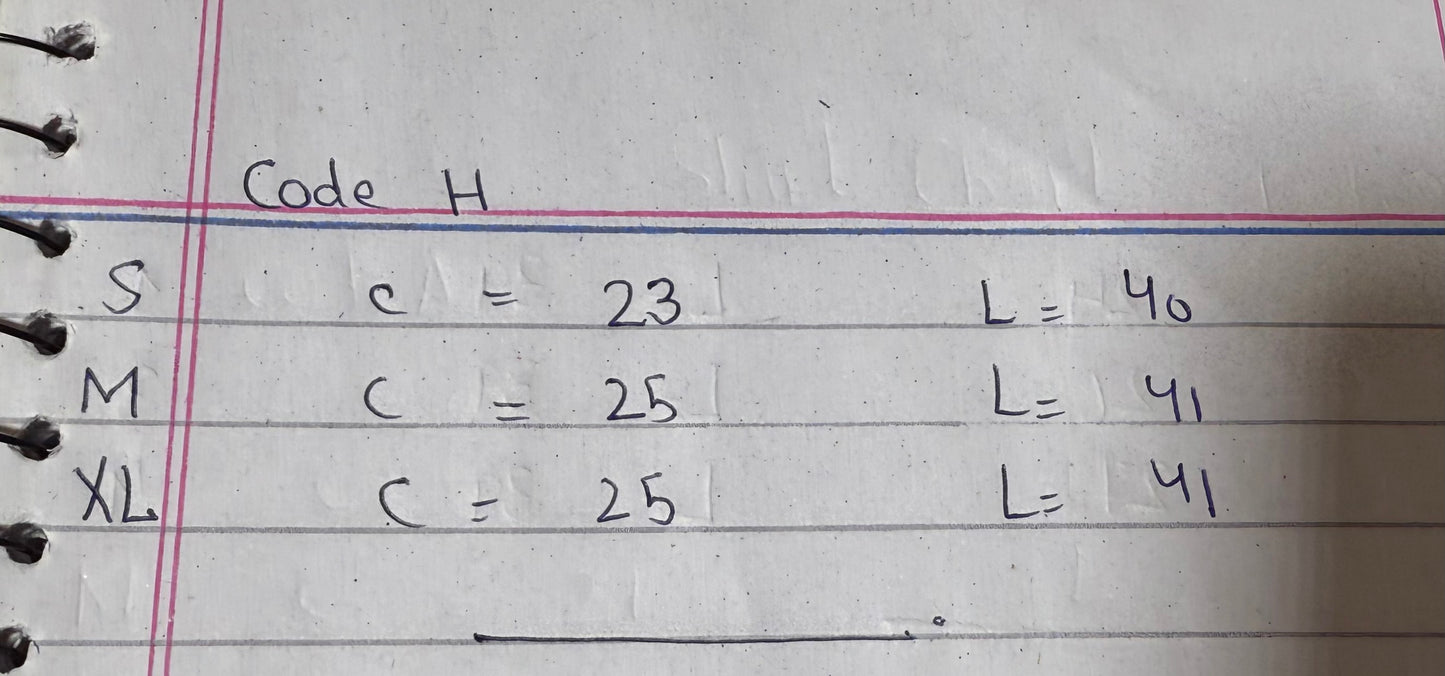 Code H
S c = 23 L = 40
M C = 25 L = 41
XL C = 25 L = 41